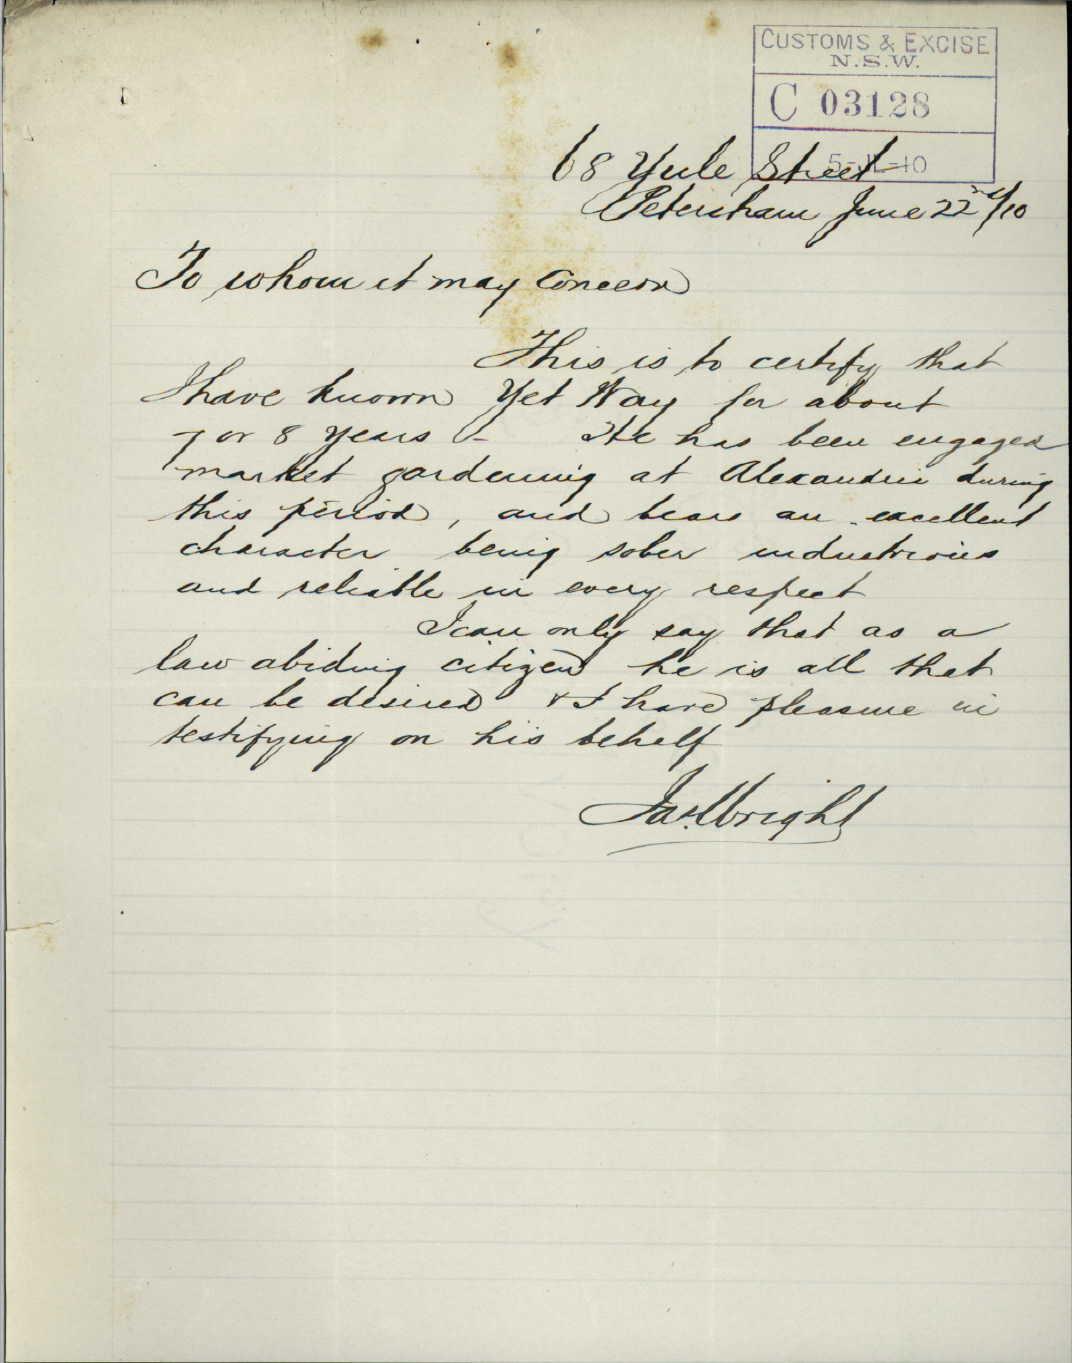 CUSTOMS & EXCISE
N.S.W.
C 03128
68 Yule Street
Petersham June 22nd/10
To whom it may Concern
This is to certify that
I have known Yet Way for about
7 or 8 years - He has been engaged
market gardening at Alexandria during
this period, and bears an excellent
character being sober industrious
and reliable in every respect
I can only say that as a
law abiding citizen he is all that
can be desired & I have pleasure in
testifying on his behalf
Jas. Wright